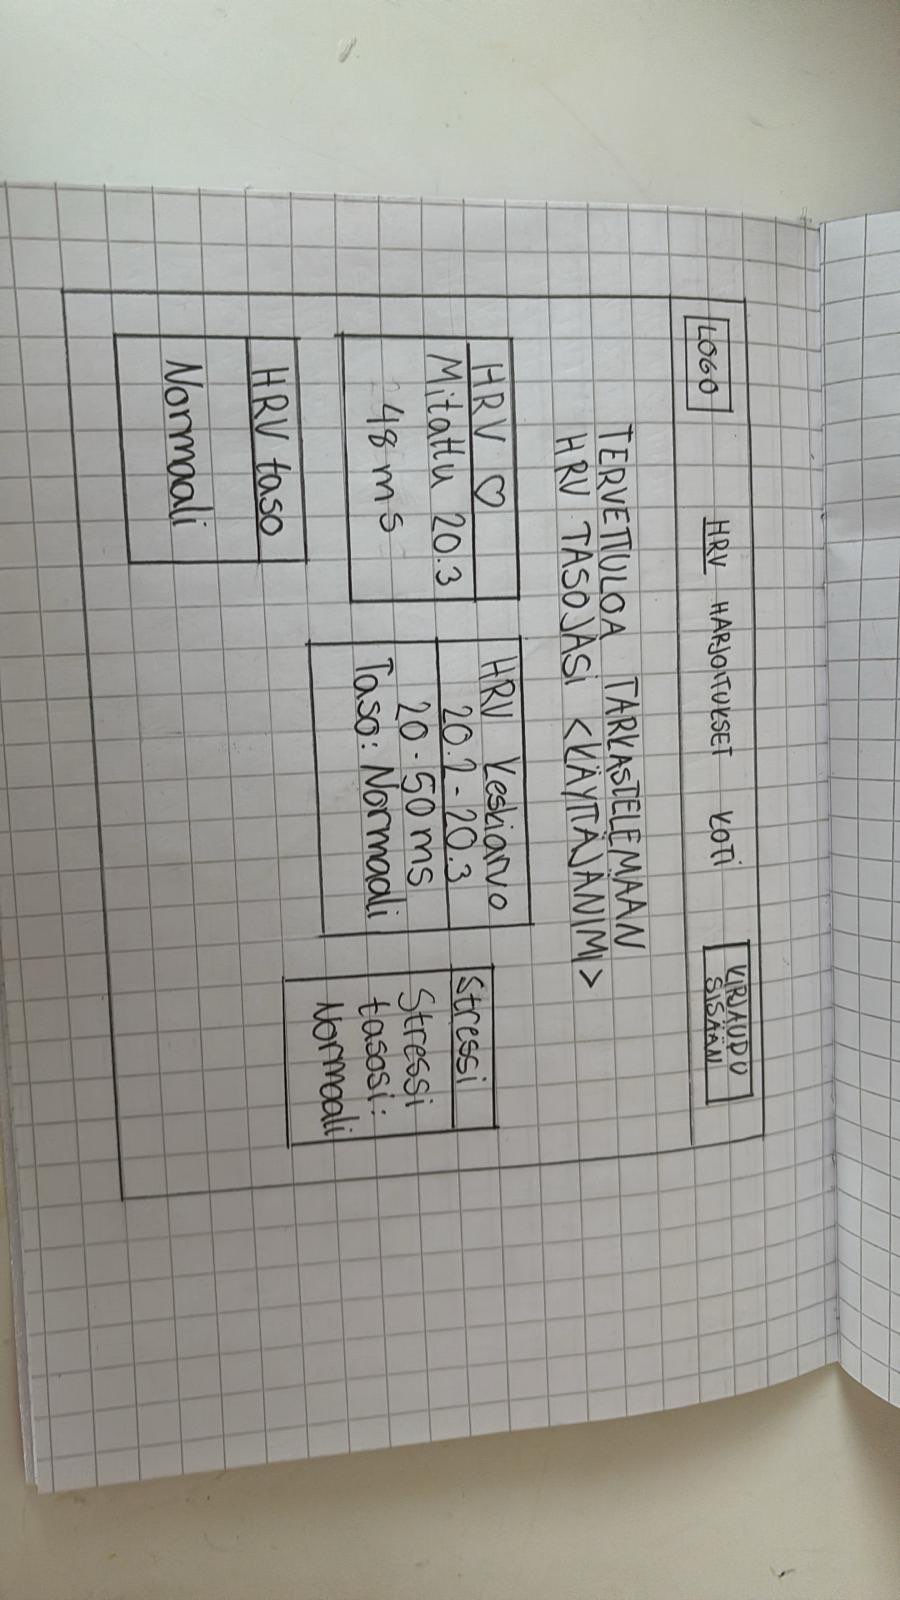 LOGO
HRV HARJOITUKSET KOTI
KIRJAUDU
SISÄÄN
TERVETTULOA TARKASTELEMAAN
HRV TASOJASI <KÄYTTÄJÄNIMI>
HRV ♡
Mitattu 20.3
48 ms
HRV Keskiarvo
20.2-20.3
20-50 ms
Taso: Normaali
Stressi
Stressi
tasosi:
Normaali
HRV taso
Normaali